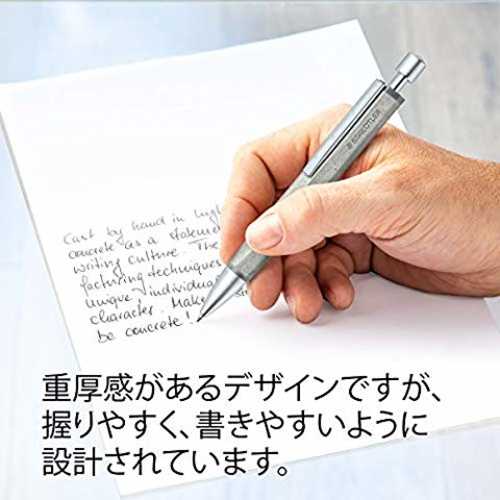 STAEDTLER
Cast by hand in high
concrete as a statement
writing culture. The
facturing techniques
unique, individual
character. Make
be concrete!
重厚感があるデザインですが、
握りやすく、書きやすいように
設計されています。